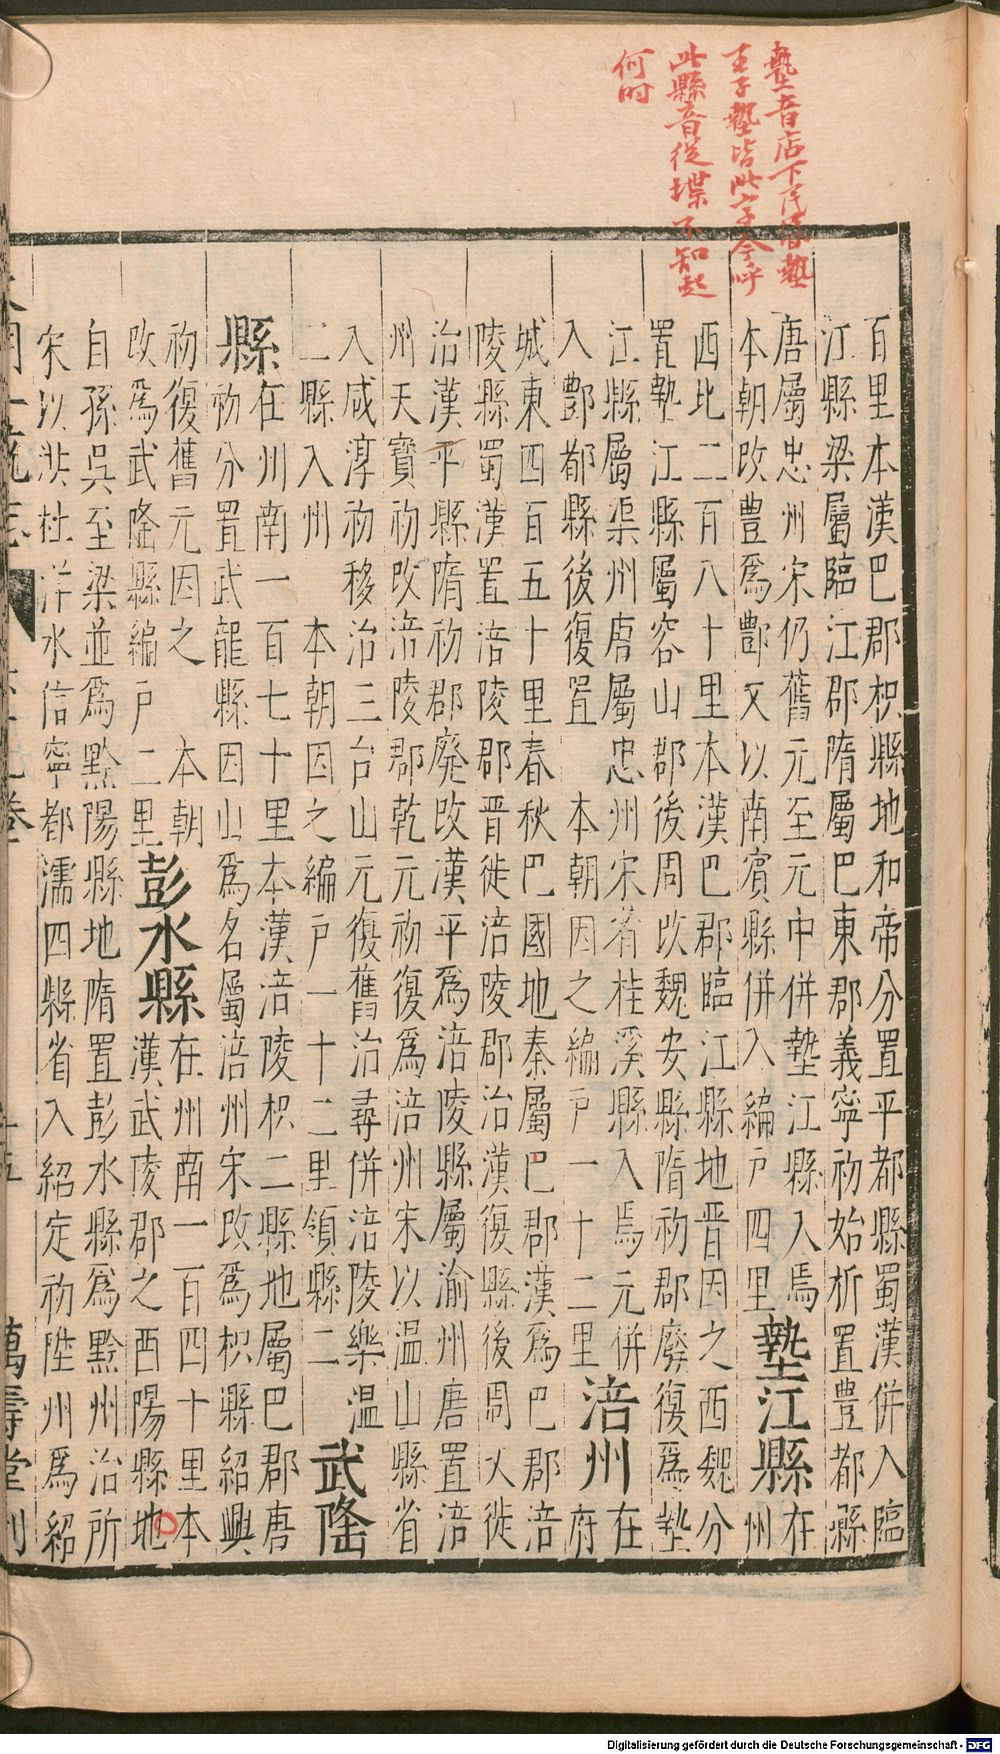 墊音店下民潘墊
王子墊皆此字今呼
此縣音從堞不知起
何时
百里本漢巴郡枳縣地和帝分置平都縣蜀漢併入臨
江縣梁屬臨江郡隋屬巴東郡義寧初始析置豊都縣
唐屬忠州宋仍舊元至元中併墊江縣入焉
本朝改豊爲酆又以南賓縣併入編戶四里墊江縣在州
西北二百八十里本漢巴郡臨江縣地晋因之西魏分
置墊江縣屬容山郡後周改魏安縣隋初郡廢復爲墊
江縣屬渠州唐屬忠州宋省桂溪縣入焉元併
入酆都縣後復置 本朝因之編戶一十二里涪州在府
城東四百五十里春秋巴國地秦屬巴郡漢爲巴郡涪
陵縣蜀漢置涪陵郡晋徙涪陵郡治漢復縣後周乂徙
治漢平縣隋初郡廢改漢平爲涪陵縣屬渝州唐置涪
州天寶初改涪陵郡乾元初復爲涪州宋以温山縣省
入咸淳初移治三台山元復舊治尋併涪陵樂温
二縣入州 本朝因之編戶一十二里領縣二武隆
縣在州南一百七十里本漢涪陵枳二縣地屬巴郡唐
初分置武龍縣因山爲名屬涪州宋改爲枳縣紹興
初復舊元因之 本朝
改爲武隆縣編戶二里彭水縣在州南一百四十里本
漢武陵郡之酉陽縣地
自孫吳至梁並爲黔陽縣地隋置彭水縣爲黔州治所
宋以洪杜洋水信寧都濡四縣省入紹定初陞州爲紹
萬壽堂刊
Digitalisierung gefördert durch die Deutsche Forschungsgemeinschaft - DFG